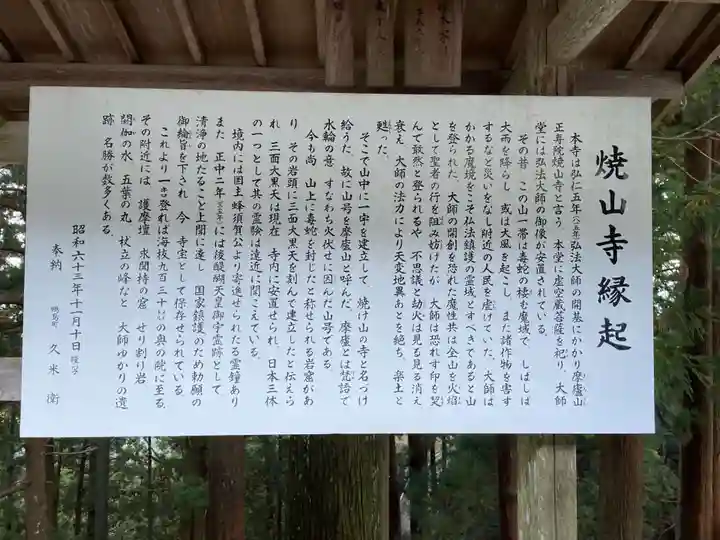 焼山寺縁起
本寺は弘仁五年(八一五年)弘法大師の開基にかかり摩廬山
正寿院焼山寺と言う 本堂に虚空蔵菩薩を祀り、大師
堂には弘法大師の御像が安置されている。
その昔 この山一帯は毒蛇の棲む魔域で しばしば
大雨を降らし 或は大風を起こし、また諸作物を害す
するなど災いをなし附近の人民を虐げていた。大師は
かかる魔境をこそ仏法鎮護の霊域とすべきであると山
を登られた、大師の開創を恐れた魔性共は全山を火焰
として聖者の行を阻み妨げたが 大師は恐れず印を契
んで敢然と登られるや 不思議と劫火は見る見る消え
衰え 大師の法力により天変地異もとを絶ち 楽土と
甦った。
そこで山中に一宇を建立して 焼け山の寺と名づけ
給うた、故に山号を摩廬山と呼んだ、摩廬とは梵語で
水輪の意 すなわち火伏せに因んだ山号である
今も尚 山上に毒蛇を封じたと称せられる岩窟があ
り その岩頭に三面大黒天を刻んで建立したと伝えら
れ、三面大黒天は現在 寺内に安置せられ 日本三体
の一つとして其の霊験は遠近に聞こえている。
境内には国主蜂須賀公より寄進せられたる霊鐘あり
また 正中二年(一三二五年)には後醍醐天皇御宇霊跡として
清浄の地たること上聞に達し 国家鎮護のため勅願の
御綸旨を下され 今 寺宝として保存せられている。
これより一粁登れば海抜九百三十㍍の奥の院に至る、
その附近には 護摩壇 求聞持の窟 せり割り岩
閼伽の水 五葉の丸 杖立の峰など 大師ゆかりの遺
跡 名勝が数多くある。
昭和六十三年十一月十日
奉納 鴨島町 久米 衛